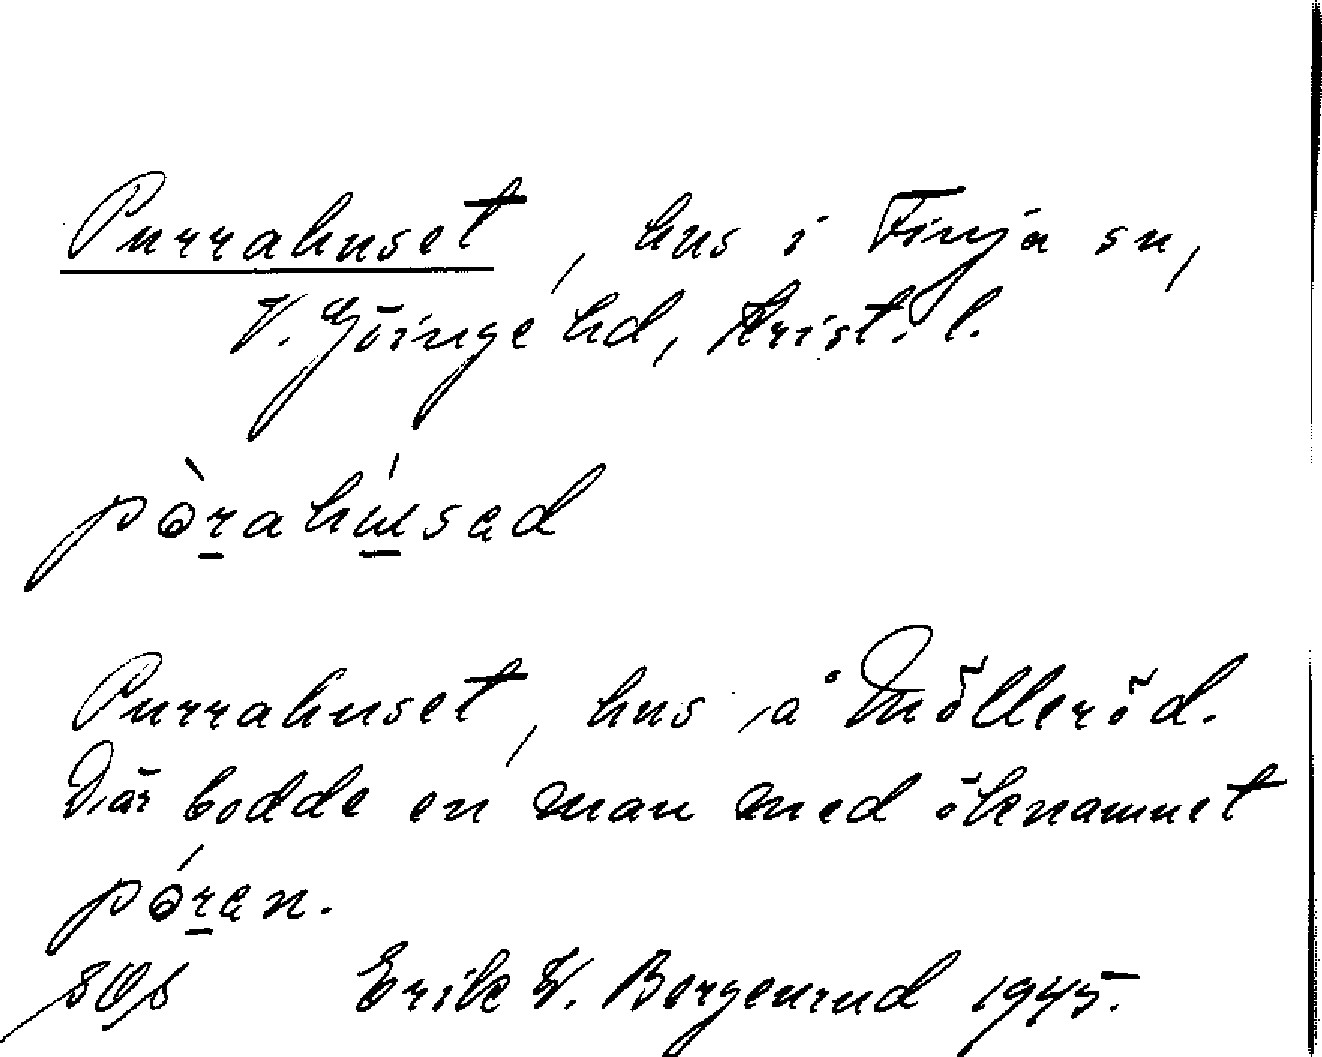 Purrahuset, hus i Finja sn,
V. Göinge hd, Krist. l.
pòrahúsad
Purrahuset, hus å Mölleröd.
Där bodde en man med öknamnet
póran.
Erik W. Bergenrud 1945.